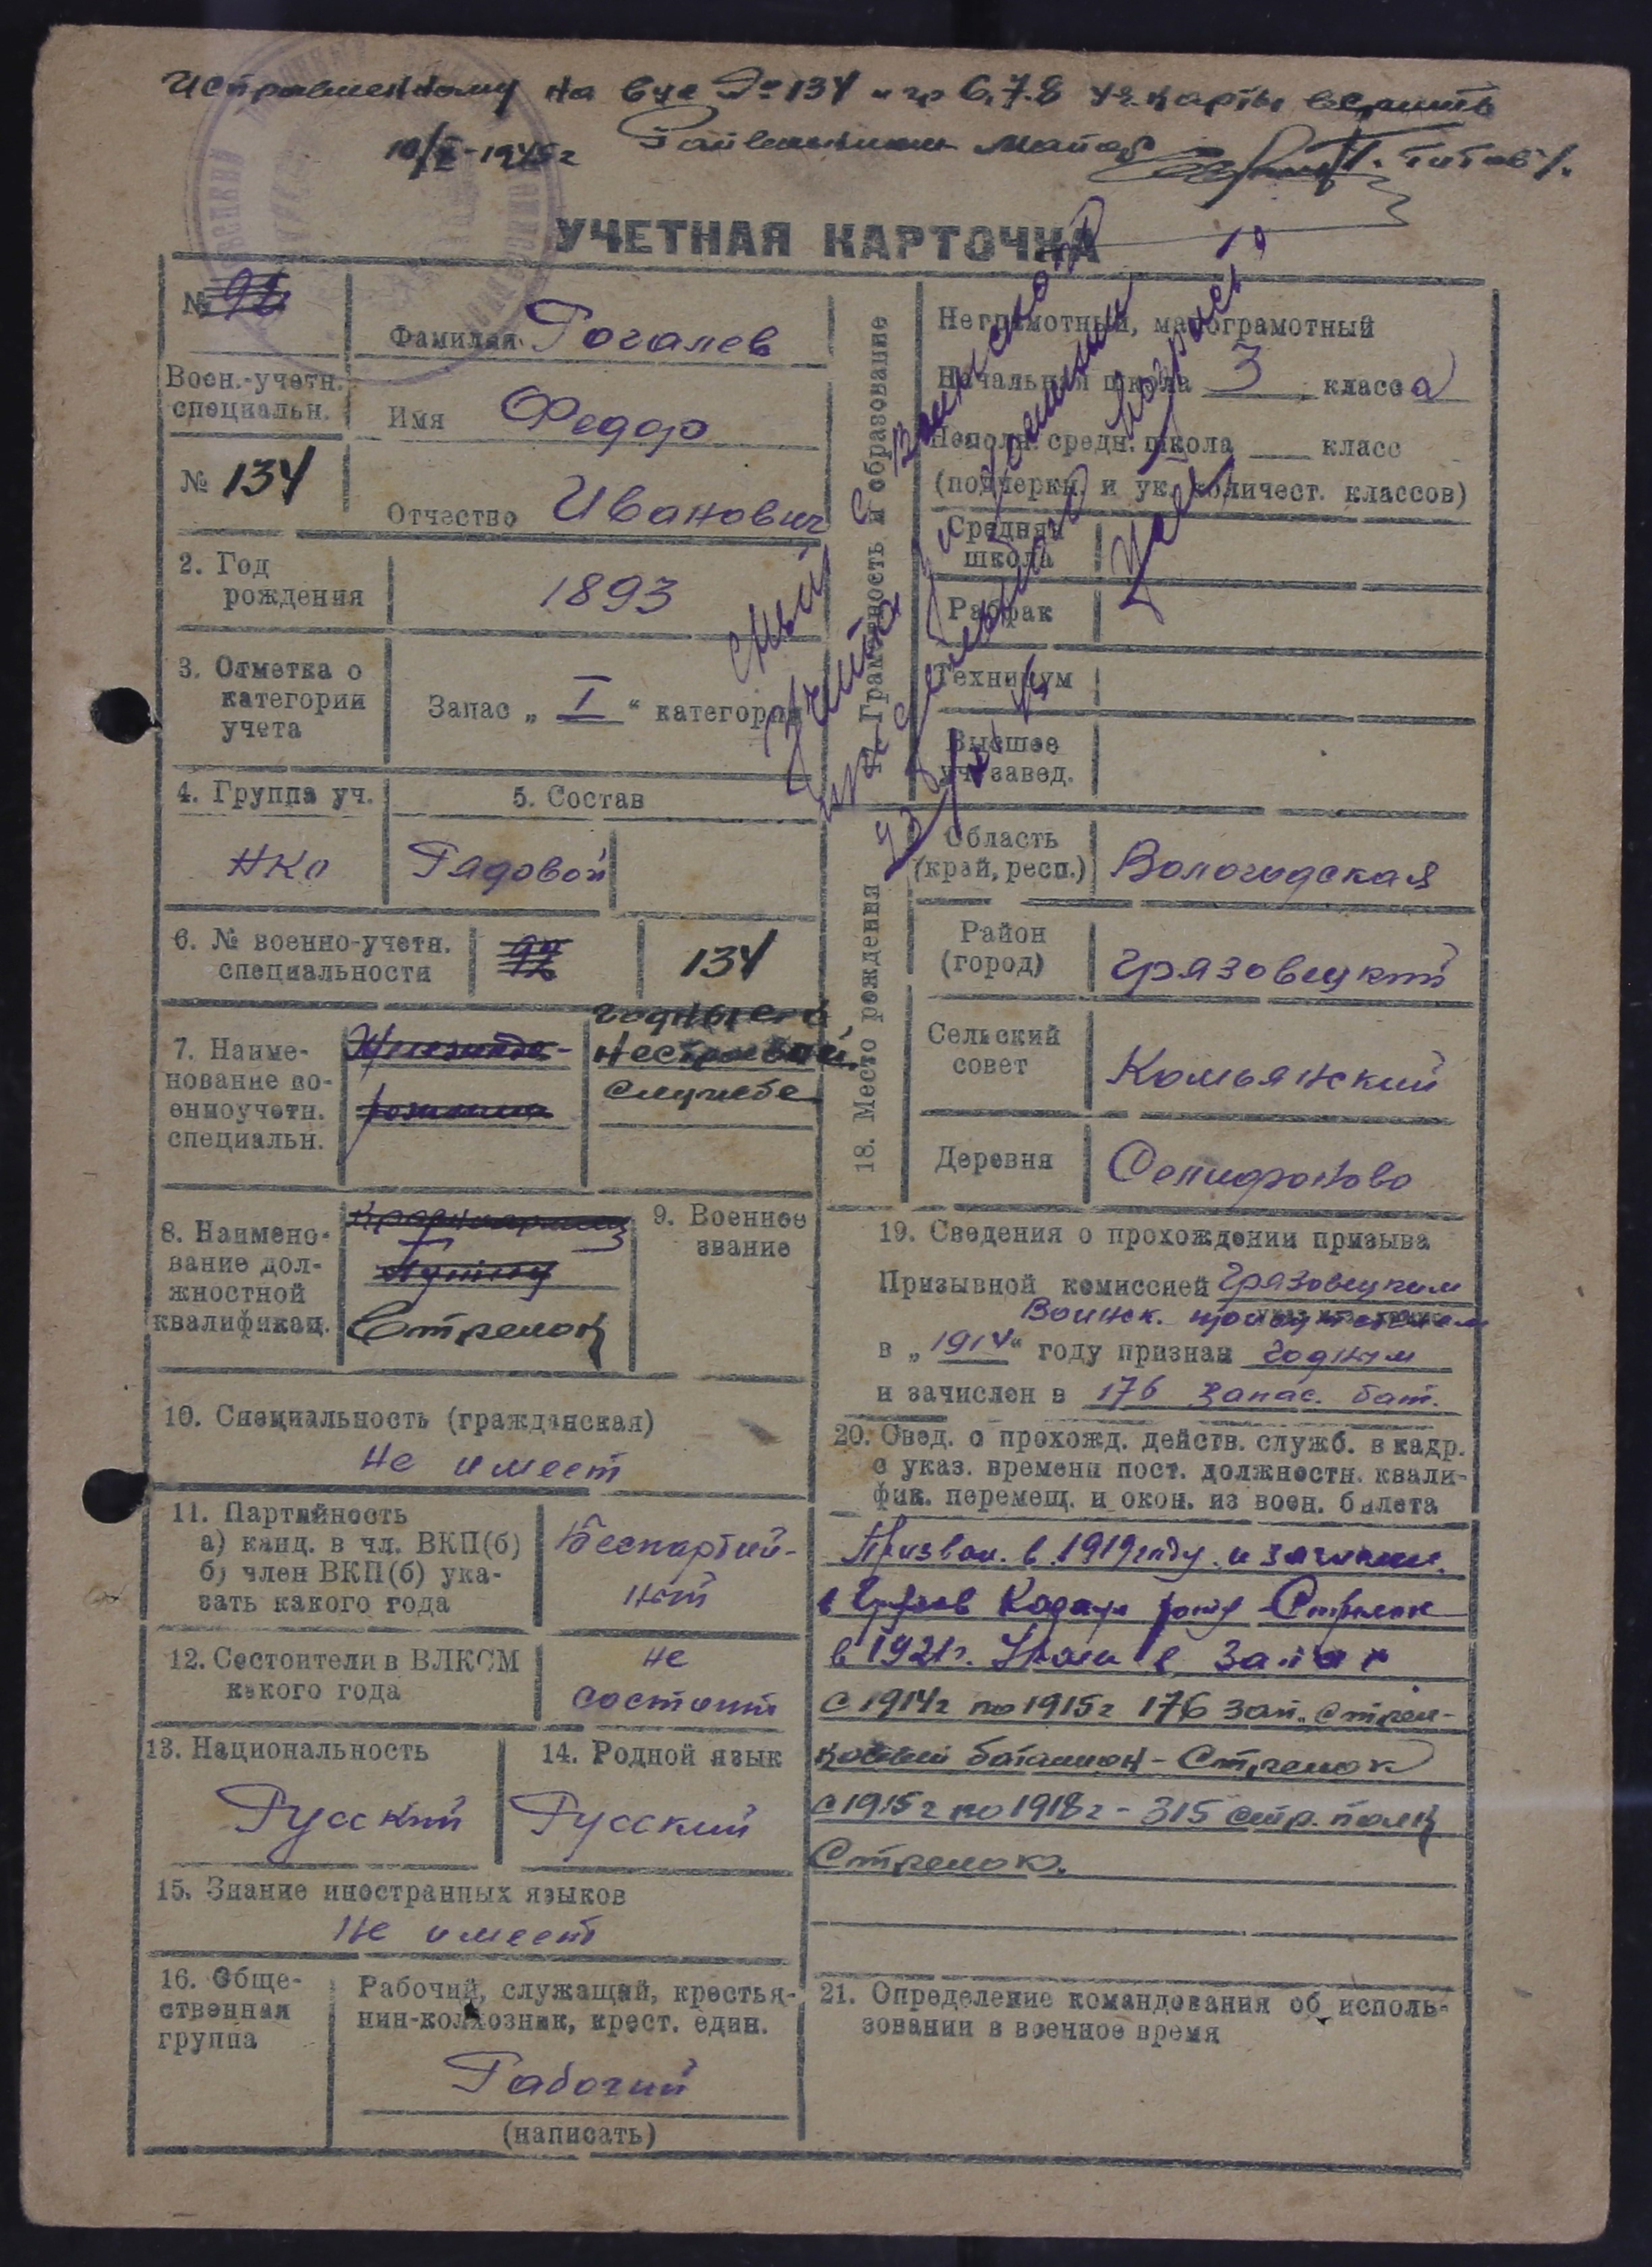 Исправленному на вус № 134 и гр 6,7,8 уч. карты верить
10/X-1945г Райвоенком Майор /Титов/.
УЧЕТНАЯ КАРТОЧКА
№
Воен.-учетн.
специальн.
№ 134
Фамилия Рогалев
Имя Федор
Отчество Иванович
2. Год
рождения
1893
3. Отметка о
категории
учета
Запас „ I “ категории
4. Группа уч.
НКО
5. Состав
Рядовой
6. № военно-учетн.
специальности
134
7. Наиме-
нование во-
енноучетн.
специальн.
годные к
нестроевой
службе
8. Наимено-
вание дол-
жностной
квалификац.
Красноармеец
Стрелок
9. Военное
звание
10. Специальность (гражданская)
Не имеет
11. Партийность
а) канд. в чл. ВКП(б)
б) член ВКП(б) ука-
зать какого года
Беспартий-
ный
12. Состоит ли в ВЛКСМ
какого года
не
состоит
13. Национальность
Русский
14. Родной язык
Русский
15. Знание иностранных языков
Не имеет
16. Обще-
ственная
группа
Рабочий, служащий, крестья-
нин-колхозник, крест. един.
Рабочий
(написать)
17. Грамотность и образование
Неграмотный, малограмотный
Начальная школа 3 класса
Неполн. средн. школа ___ класс
(подчеркн. и ук. количест. классов)
Средняя
школа
Рабфак
Техникум
Высшее
уч. завед.
С воинского
18. Место рождения
Область
(край, респ.)
Вологодская
Район
(город)
Грязовецкий
Сельский
совет
Комьянский
Деревня
Селифоново
19. Сведения о прохождении призыва
Призывной комиссией Грязовецким
Воинск. присутствием
в „ 1914 “ году признан годным
и зачислен в 176 Запас. бат.
20. Свед. о прохожд. действ. служб. в кадр.
с указ. времени пост. должностн. квали-
фик. перемещ. и окон. из воен. билета
Призван. в 1919 году и зачислен.
в роту Стрелок
в 1921г. в запас
с 1914г по 1915г 176 зап. стрел-
ковый батальон - Стрелок
с 1915г по 1918г - 315 стр. полк
Стрелок.
21. Определение командования об исполь-
зовании в военное время